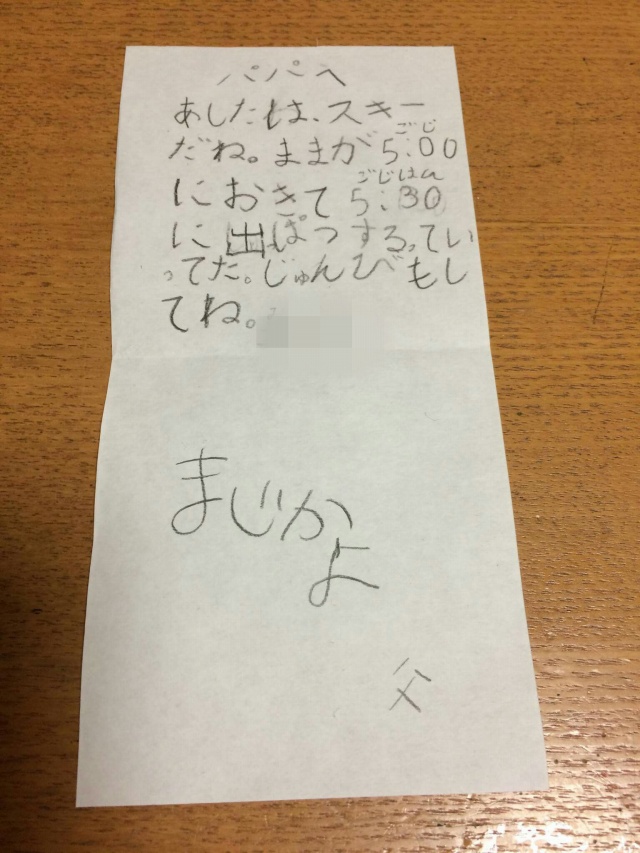 パパへ
あしたは、スキー
ごじ
だね。ままが5:00
ごじはん
におきて5:30
に出ぱつするってい
ってた。じゅんびもし
てね。
まじか
よ
父